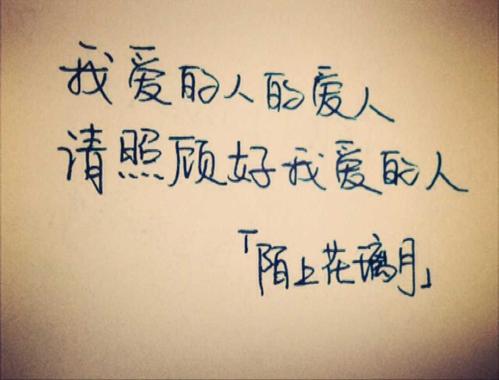 我爱的人的爱人
请照顾好我爱的人
「陌上花璃月」